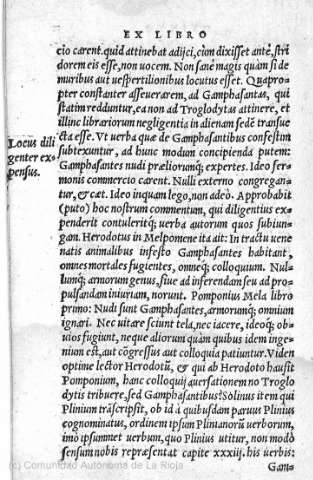 EX LIBRO
cio carent. quid attinebat adijci, cùm dixisset antè, stri
dorem eis esse, non uocem. Non sanè magis quàm si de
muribus aut uespertilionibus locutus esset. Quapro=
pter constanter asseuerarem, ad Gamphasantas, qui
statim redduntur, ea non ad Troglodytas attinere, et
illinc librariorum negligentia in alienam sedē transue
cta esse. Vt uerba quæ de Gamphasantibus confestim
subtexuntur, ad hunc modum concipienda putem:
Locus dili
genter ex=
pensus.
Gamphasantes nudi præliorumq; expertes. Ideo ser=
monis commercio carent. Nulli externo congregan=
tur, & cæt. Ideo inquam lego, non adeò. Approbabit
(puto) hoc nostrum commentum, qui diligentius ex=
penderit contuleritq; uerba autorum quos subiun=
gam. Herodotus in Melpomene ita ait: In tractu uene
natis animalibus infesto Gamphasantes habitant,
omnes mortales fugientes, omneq; colloquium. Nul=
lumq; armorum genus, siue ad inferendam seu ad pro=
pulsandam iniuriam, norunt. Pomponius Mela libro
primo: Nudi sunt Gamphasantes, armorumq; omnium
ignari. Nec uitare sciunt tela, nec iacere, ideoq; ob=
uios fugiunt, neque aliorum quàm quibus idem inge=
nium est, aut cōgressus aut colloquia patiuntur. Viden
optime lector Herodotū, & qui ab Herodoto hausit
Pomponium, hanc colloquij auersationem no Troglo
dytis tribuere, sed Gamphasantibus? Solinus item qui
Plinium trāscripsit, ob id à quibusdam paruus Plinius
cognominatus, ordinem ipsum Plinianorū uerborum,
imò ipsummet uerbum, quo Plinius utitur, non modò
sensum nobis repræsentat capite xxxiij. his uerbis:
Gam=
(c) Comunidad Autónoma de La Rioja